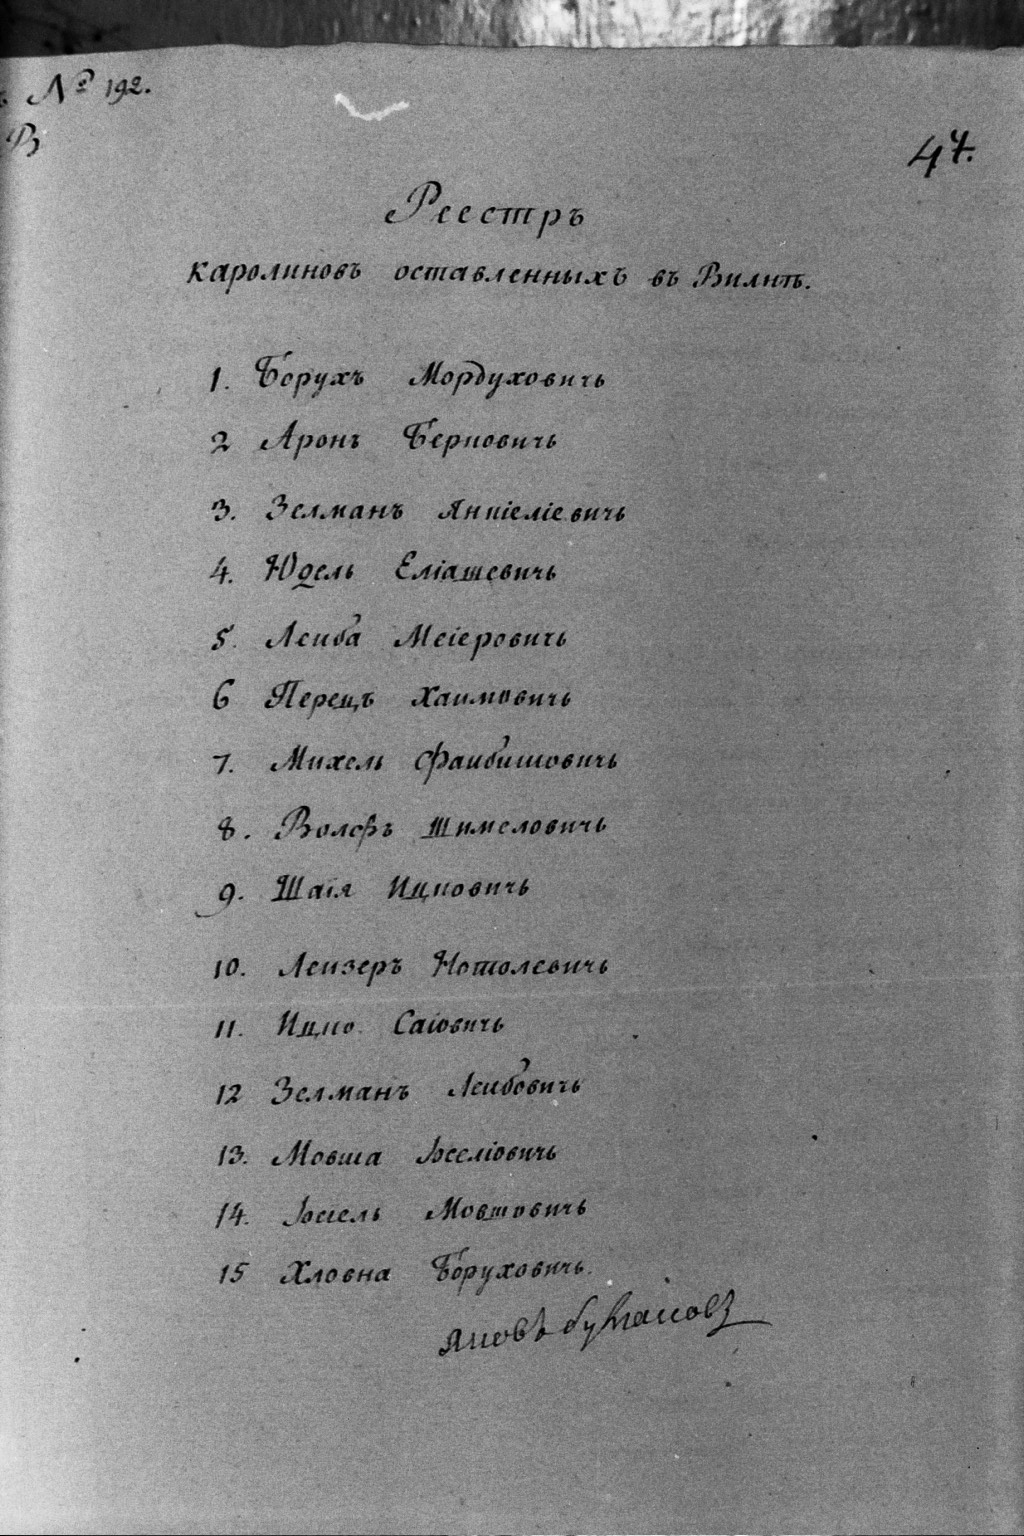 № 192.
В
47.
Реестръ
каролиновъ оставленныхъ въ Вилнѣ.
1. Борухъ Мордуховичь
2 Аронъ Берковичь
3. Зелманъ Янкіеліевичь
4. Юдель Еліашевичь
5. Леиба Меіеровичь
6 Перецъ Хаимовичь
7. Михель Фаибишовичь
8. Волфъ Шимеловичь
9. Шаія Ицковичь
10. Леизеръ Нотолевичь
11. Ицко Саіовичь
12 Зелманъ Леибовичь
13. Мовша Іоселіовичь
14. Іосель Мовшовичь
15 Хловна Боруховичь.
Яковъ